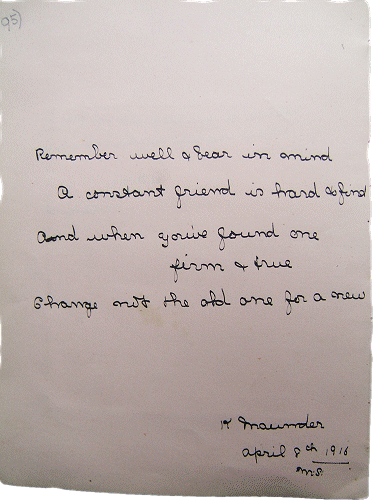 95)
Remember well & bear in mind
A constant friend is hard to find
And when you've found one
firm & true
Change not the old one for a new
K Maunder
April 8th 1916
M.S.